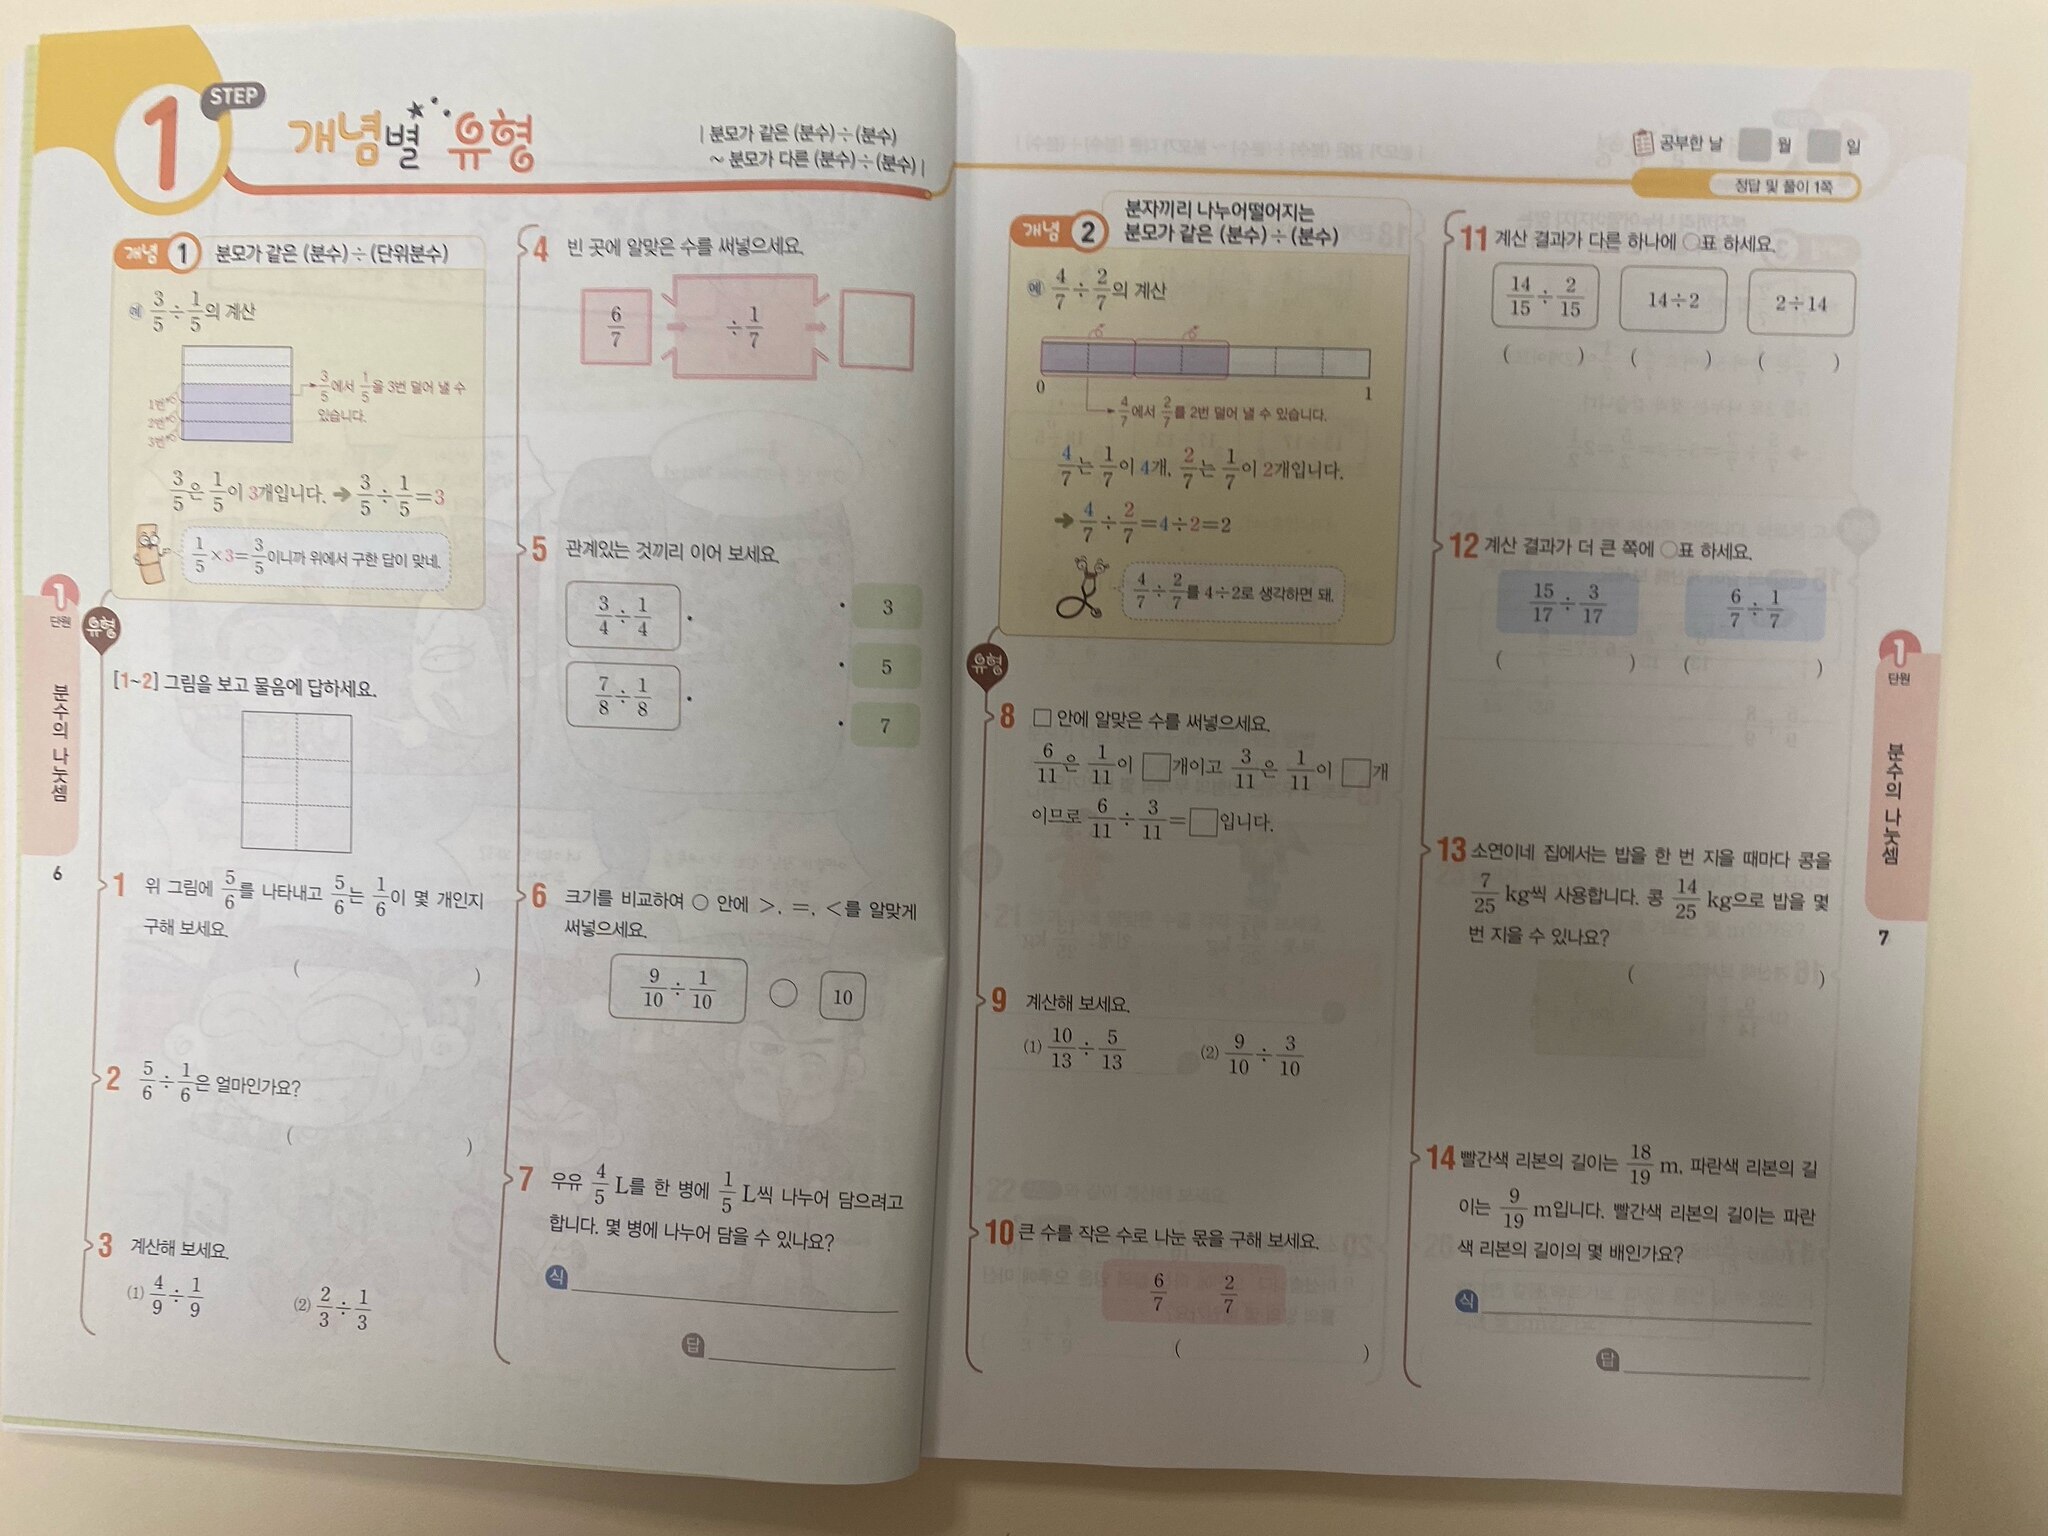 1
STEP
개념별 유형
| 분모가 같은 (분수)÷(분수)
~ 분모가 다른 (분수)÷(분수) |
개념 1 분모가 같은 (분수)÷(단위분수)
예 3/5÷1/5의 계산
3/5에서 1/5을 3번 덜어 낼 수
있습니다.
1번
2번
3번
3/5은 1/5이 3개입니다. ➔ 3/5÷1/5=3
1/5×3=3/5이니까 위에서 구한 답이 맞네.
1
단원
분수의 나눗셈
6
유형
[1~2] 그림을 보고 물음에 답하세요.
1 위 그림에 5/6를 나타내고 5/6는 1/6이 몇 개인지
구해 보세요.
( )
2 5/6÷1/6은 얼마인가요?
( )
3 계산해 보세요.
(1) 4/9÷1/9 (2) 2/3÷1/3
4 빈 곳에 알맞은 수를 써넣으세요.
6/7 ÷1/7
5 관계있는 것끼리 이어 보세요.
3/4÷1/4 · · 3
· 5
7/8÷1/8 · · 7
6 크기를 비교하여 ○ 안에 >, =, <를 알맞게
써넣으세요.
9/10÷1/10 ○ 10
7 우유 4/5 L를 한 병에 1/5 L씩 나누어 담으려고
합니다. 몇 병에 나누어 담을 수 있나요?
식
답
공부한 날 월 일
정답 및 풀이 1쪽
개념 2 분자끼리 나누어떨어지는
분모가 같은 (분수)÷(분수)
예 4/7÷2/7의 계산
0 1
4/7에서 2/7를 2번 덜어 낼 수 있습니다.
4/7는 1/7이 4개, 2/7는 1/7이 2개입니다.
➔ 4/7÷2/7=4÷2=2
4/7÷2/7를 4÷2로 생각하면 돼.
유형
8 □ 안에 알맞은 수를 써넣으세요.
6/11은 1/11이 □개이고 3/11은 1/11이 □개
이므로 6/11÷3/11=□입니다.
9 계산해 보세요.
(1) 10/13÷5/13 (2) 9/10÷3/10
10 큰 수를 작은 수로 나눈 몫을 구해 보세요.
6/7 2/7
( )
11 계산 결과가 다른 하나에 ○표 하세요.
14/15÷2/15 14÷2 2÷14
( ) ( ) ( )
12 계산 결과가 더 큰 쪽에 ○표 하세요.
15/17÷3/17 6/7÷1/7
( ) ( )
13 소연이네 집에서는 밥을 한 번 지을 때마다 콩을
7/25 kg씩 사용합니다. 콩 14/25 kg으로 밥을 몇
번 지을 수 있나요?
( )
14 빨간색 리본의 길이는 18/19 m, 파란색 리본의 길
이는 9/19 m입니다. 빨간색 리본의 길이는 파란
색 리본의 길이의 몇 배인가요?
식
답
1
단원
분수의 나눗셈
7